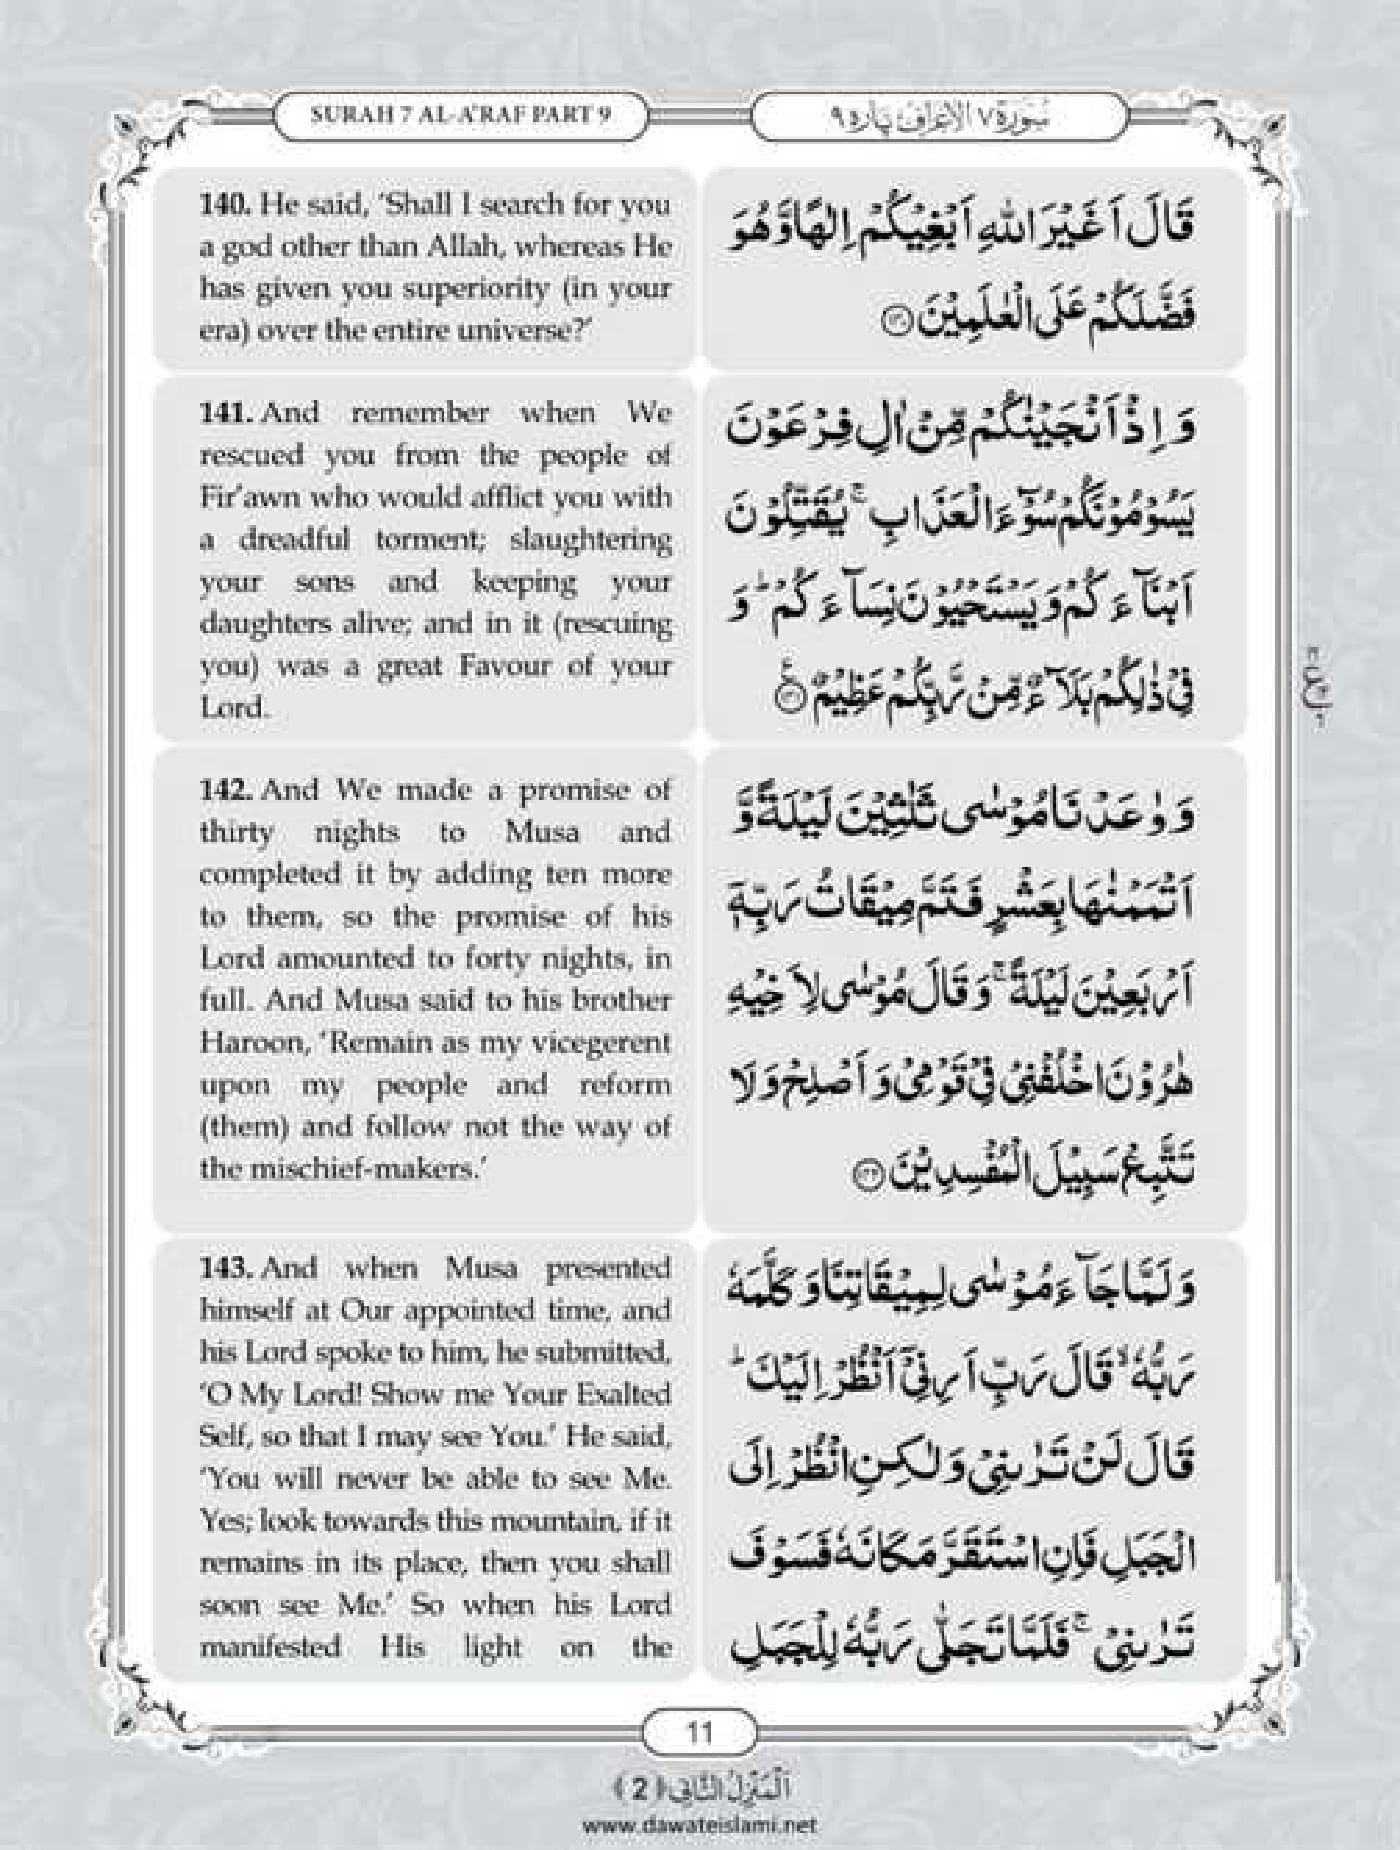 SURAH 7 AL-A'RAF PART 9
سُوْرَة ٧ الاعراف پاره ٩
140. He said, ‘Shall I search for you
a god other than Allah, whereas He
has given you superiority (in your
era) over the entire universe?’
قَالَ اَغَیْرَ اللّٰهِ اَبْغِیْكُمْ اِلٰهًا وَّ هُوَ
فَضَّلَكُمْ عَلَى الْعٰلَمِیْنَ ﴿۱۴۰﴾
141. And remember when We
rescued you from the people of
Fir’awn who would afflict you with
a dreadful torment; slaughtering
your sons and keeping your
daughters alive; and in it (rescuing
you) was a great Favour of your
Lord.
وَ اِذْ اَنْجَیْنٰكُمْ مِّنْ اٰلِ فِرْعَوْنَ
یَسُوْمُوْنَكُمْ سُوْٓءَ الْعَذَابِ ۚ یُقَتِّلُوْنَ
اَبْنَآءَكُمْ وَ یَسْتَحْیُوْنَ نِسَآءَكُمْ ؕ وَ
فِیْ ذٰلِكُمْ بَلَآءٌ مِّنْ رَّبِّكُمْ عَظِیْمٌ ﴿۱۴۱﴾
142. And We made a promise of
thirty nights to Musa and
completed it by adding ten more
to them, so the promise of his
Lord amounted to forty nights, in
full. And Musa said to his brother
Haroon, ‘Remain as my vicegerent
upon my people and reform
(them) and follow not the way of
the mischief-makers.’
وَ وٰعَدْنَا مُوْسٰى ثَلٰثِیْنَ لَیْلَةً وَّ
اَتْمَمْنٰهَا بِعَشْرٍ فَتَمَّ مِیْقَاتُ رَبِّهٖۤ
اَرْبَعِیْنَ لَیْلَةً ۚ وَ قَالَ مُوْسٰى لِاَخِیْهِ
هٰرُوْنَ اخْلُفْنِیْ فِیْ قَوْمِیْ وَ اَصْلِحْ وَ لَا
تَتَّبِعْ سَبِیْلَ الْمُفْسِدِیْنَ ﴿۱۴۲﴾
143. And when Musa presented
himself at Our appointed time, and
his Lord spoke to him, he submitted,
‘O My Lord! Show me Your Exalted
Self, so that I may see You.’ He said,
‘You will never be able to see Me.
Yes; look towards this mountain, if it
remains in its place, then you shall
soon see Me.’ So when his Lord
manifested His light on the
وَ لَمَّا جَآءَ مُوْسٰى لِمِیْقَاتِنَا وَ كَلَّمَهٗ
رَبُّهٗ ۙ قَالَ رَبِّ اَرِنِیْۤ اَنْظُرْ اِلَیْكَ ؕ
قَالَ لَنْ تَرٰىنِیْ وَ لٰكِنِ انْظُرْ اِلَى
الْجَبَلِ فَاِنِ اسْتَقَرَّ مَكَانَهٗ فَسَوْفَ
تَرٰىنِیْ ۚ فَلَمَّا تَجَلّٰى رَبُّهٗ لِلْجَبَلِ
11
اَلْمَنْزِلُ الثَّانِی ﴿2﴾
www.dawateislami.net